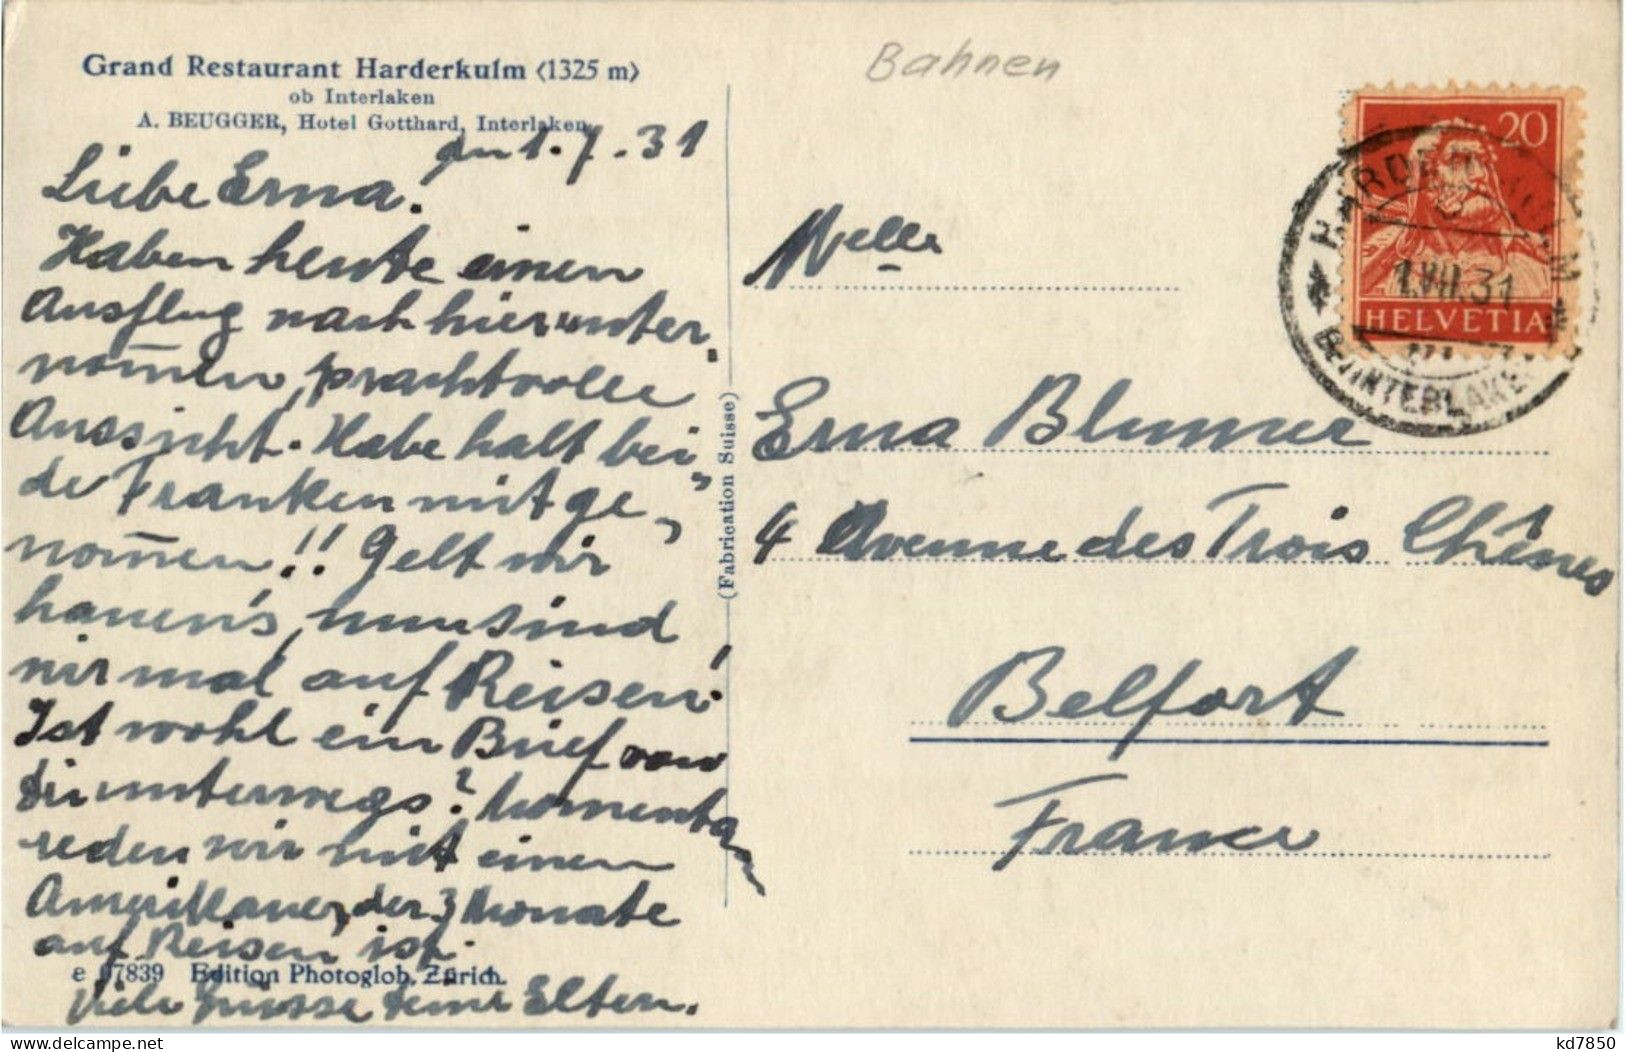 Bahnen
Grand Restaurant Harderkulm (1325 m)
ob Interlaken
A. BEUGGER, Hotel Gotthard, Interlaken
den 1. 7. 31
Liebe Erna!
Haben heute einen
Ausflug nach hier unter-
nom̄en, prachtvolle
Aussicht. Habe halt bei-
de Franken mitge-
nom̄en!! Gelt wir
hauen's, nun sind
wir mal auf Reisen!
Ist wohl ein Brief von
dir unterwegs? Momentan
reden wir mit einem
Amerikaner, der 3 Monate
auf Reisen ist.
e 07839 Edition Photoglob, Zürich.
Viele Grüsse deine Eltern.
(Fabrication Suisse)
20
HELVETIA
HARDERKULM
1.VII.31
B/INTERLAKEN
Melle
Erna Blumer
4 Avenue des Trois Chênes
Belfort
France
kd7850